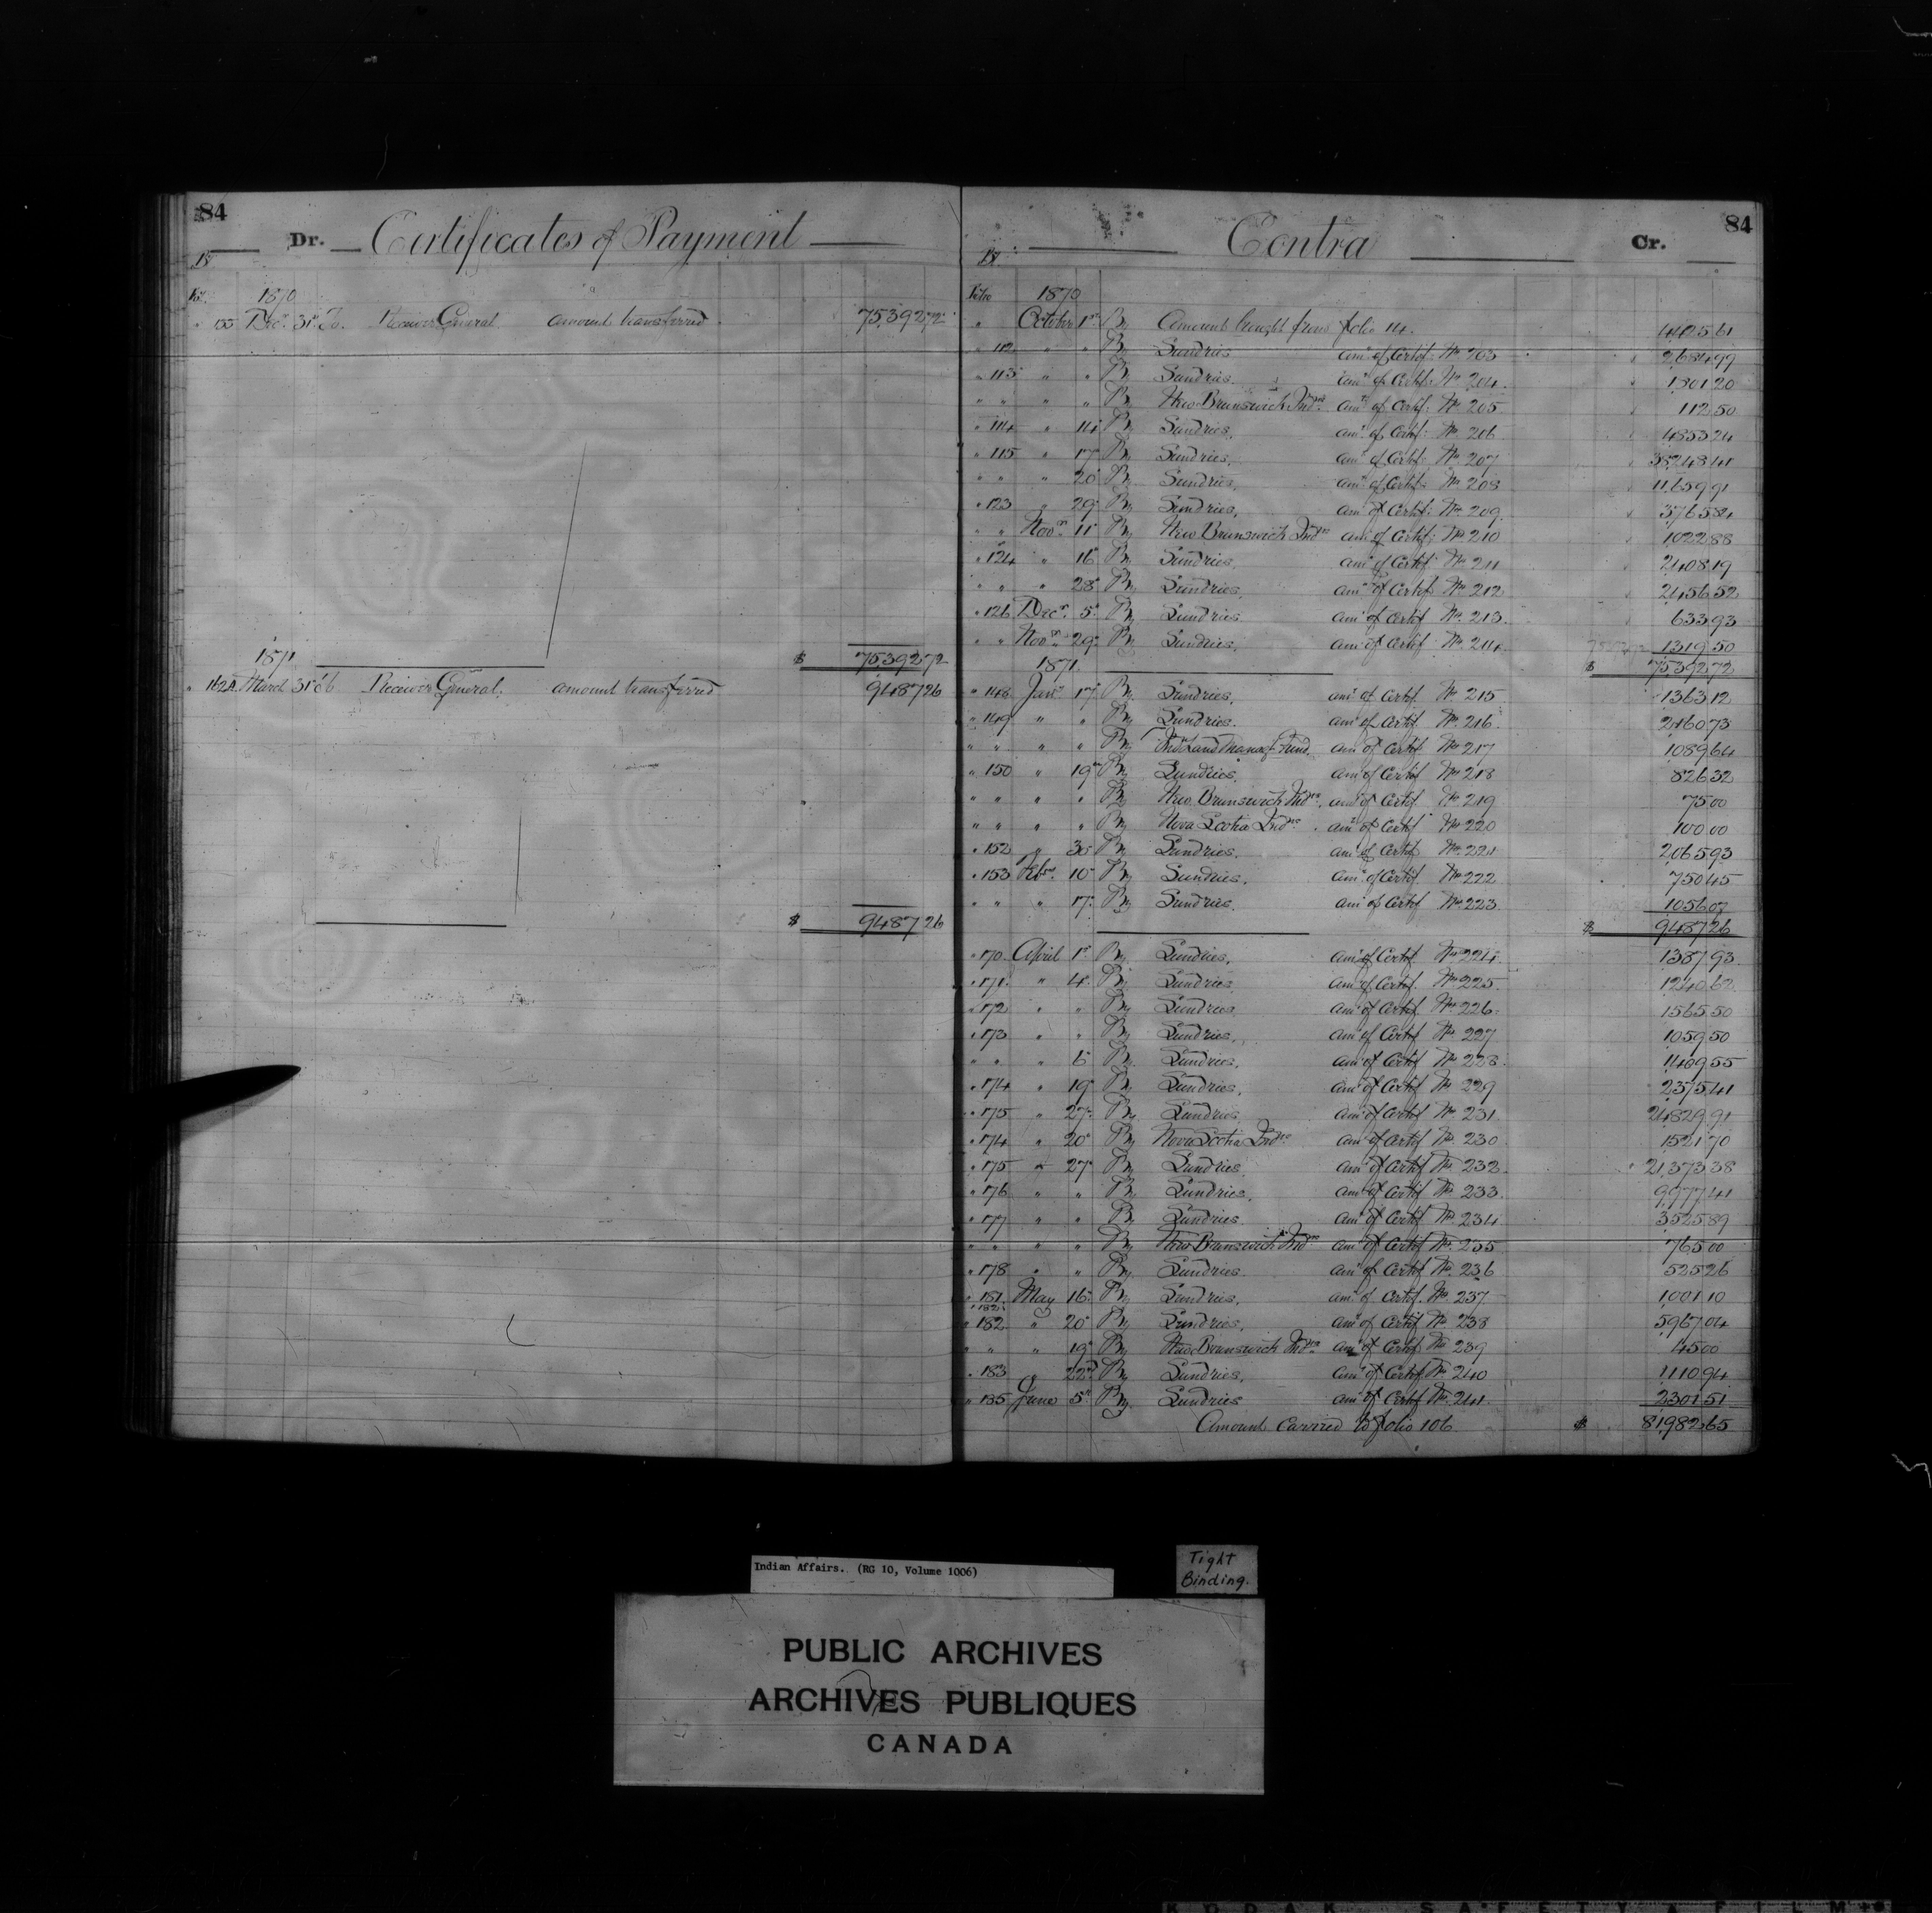 84
Dr. Certificates of Payment
18
Fol. 1870
" 155 Decr. 31st To. Receiver General amount transferred 75,392,72
$ 75,392,72
1871
" 162A March 31st To Receiver General, amount transferred 9,487,26
$ 9,487,26
84
Contra Cr.
18
Folio 1870
" October 1st By Amount brought from folio 14. 4,425,61
" 112 " " By Sundries amt. of Certif: No. 203 2,684,99
" 113 " " By Sundries amt. of Certif: No. 204. 1,801,20
" " " " By New Brunswick Indns. amt. of Certif: No. 205. 112,50
" 114 " 14 By Sundries, amt. of Certif: No. 206 4,853,24
" 115 " 17 By Sundries, amt. of Certif: No. 207 38,248,41
" " " 20 By Sundries, amt. of Certif: No. 208 11,659,91
" 123 " 29 By Sundries, amt. of Certif: No. 209. 3,765,84
" " Novr. 11 By New Brunswick Indns amt. of Certif: No. 210 1,022,88
" 124 " 16 By Sundries, amt. of Certif: No. 211 2,408,19
" " " 28 By Sundries, amt. of Certif: No. 212 2,456,52
" 126 Decr. 5 By Sundries amt. of Certif No. 213. 633,93
" " Novr. 29 By Sundries, amt. of Certif No. 214. 1,319,50
$ 75,392,72
1871
" 148 Jany 17 By Sundries, amt. of Certif No. 215 1,363,12
" 149 " " By Sundries. amt. of Certif No. 216. 2,160,73
" " " " By Ind. Land Managt. Fund. amt. of Certif No. 217 1,089,64
" 150 " 19 By Sundries, amt. of Certif No. 218 826,32
" " " " By New Brunswick Indns. amt. of Certif No. 219 75,00
" " " " By Nova Scotia Indns. amt. of Certif No. 220 100,00
" 152 " 30 By Sundries. amt. of Certif No. 221 2,065,93
" 153 Feby. 10 By Sundries, amt. of Certif No. 222 750,45
" " " 17 By Sundries. amt. of Certif No. 223. 1,056,07
$ 9,487,26
" 170 April 1st By Sundries, amt. of Certif No. 224. 1,387,93
" 171 " 4 By Sundries amt. of Certif. No. 225. 1,240,62
" 172 " " By Sundries, amt. of Certif No. 226. 1,565,50
" 173 " " By Sundries, amt. of Certif No. 227 1,059,50
" " " 6 By Sundries, amt. of Certif No. 228. 1,409,55
" 174 " 19 By Sundries, amt. of Certif No. 229 2,375,41
" 175 " 27 By Sundries amt. of Certif No. 231. 24,829,91
" 174 " 20 By Nova Scotia Indns amt. of Certif No. 230 1,521,70
" 175 " 27 By Sundries. amt. of Certif No. 232 21,373,38
" 176 " " By Sundries, amt. of Certif No. 233. 9,977,41
" 177 " " By Sundries amt. of Certif No. 234 3,525,89
" " " " By New Brunswick Indns amt. of Certif No. 235 765,00
" 178 " " By Sundries amt. of Certif No. 236 525,26
" 181 May 16 By Sundries, amt. of Certif. No. 237 1,001,10
" 182
" 182 " 20 By Sundries, amt. of Certif No. 238 5,967,04
" " " 19 By New Brunswick Indns amt. of Certif No. 239 45,00
" 183 " 22nd By Sundries, amt. of Certif No. 240 1,110,94
" 185 June 5th By Sundries amt. of Certif No. 241. 2,301,51
Amount Carried to folio 106 $ 81,982,65
Indian Affairs. (RG 10, Volume 1006)
Tight
Binding.
PUBLIC ARCHIVES
ARCHIVES PUBLIQUES
CANADA
KODAK SAFETY FILM